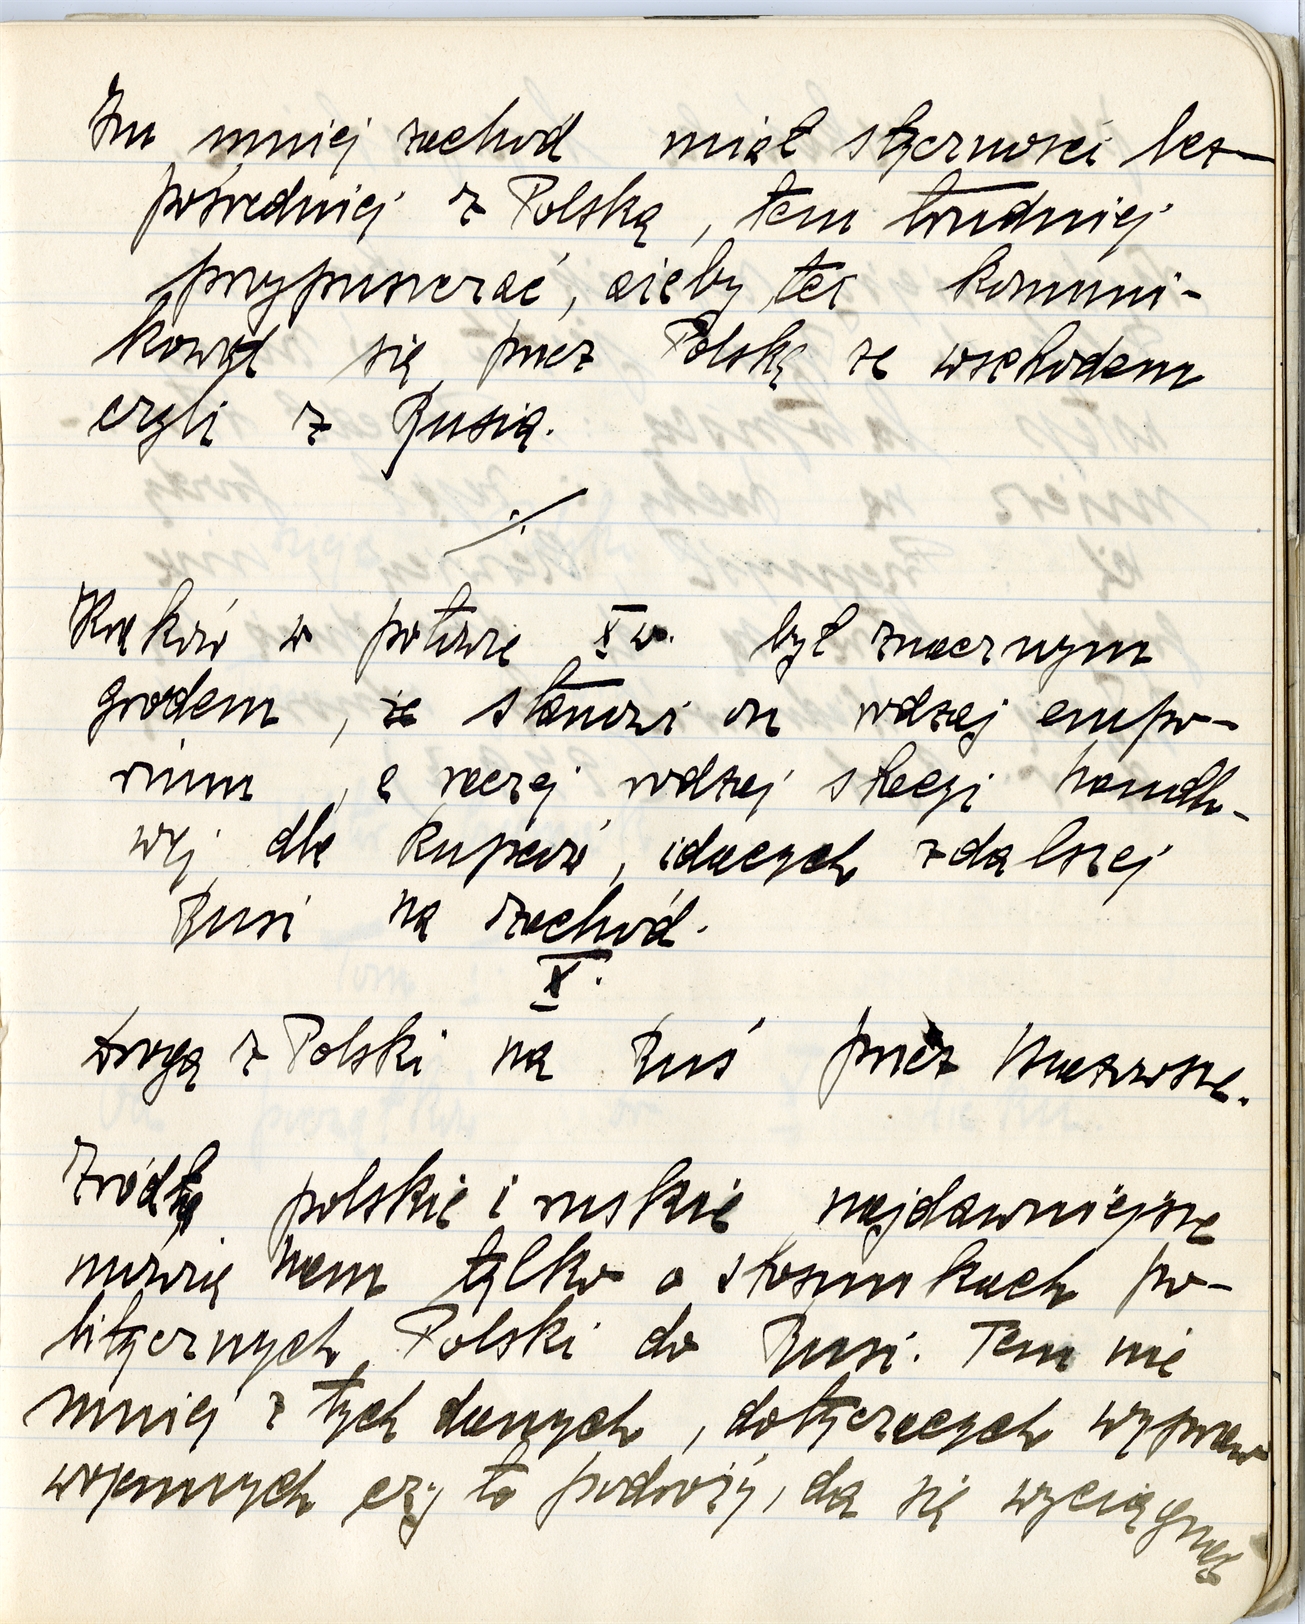 Im mniej zachód miał styczności bez-
pośredniej z Polską, tem trudniej
przypuszczać, ażeby ten komuni-
kował się przez Polskę ze wschodem
czyli z Rusią.
Kraków w połowie X w. był znacznym
grodem, że stanowi on rodzaj empo-
rium, a raczej rodzaj stacyi handlo-
wej dla kupców, idących z dalszej
Rusi na zachód.
X.
Droga z Polski na Ruś przez Mazowsze.
Źródła polskie i ruskie najdawniejsze
mówią nam tylko o stosunkach po-
litycznych Polski do Rusi. Tem nie
mniej z tych danych, dotyczących wypraw
wojennych czy to podróży, da się wyciągnąć